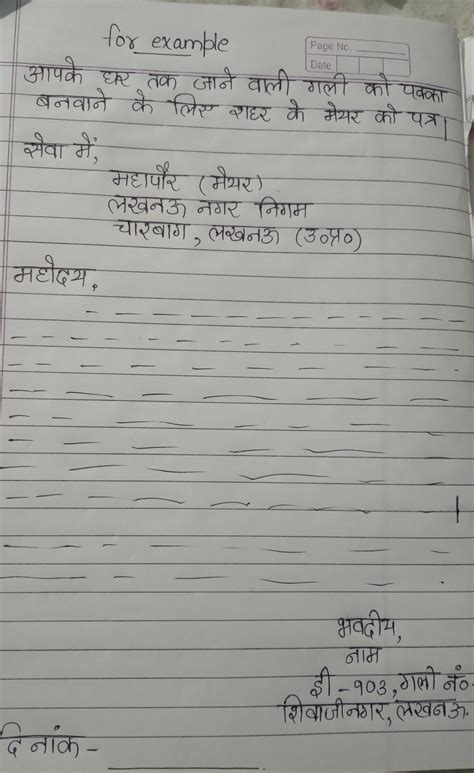 for example
Page No.
Date
आपके घर तक जाने वाली गली को पक्का
बनवाने के लिए शहर के मेयर को पत्र।
सेवा में,
महापौर (मेयर)
लखनऊ नगर निगम
चारबाग, लखनऊ (उ०प्र०)
महोदय,
भवदीय,
नाम
डी -१०३, गली नं०
शिवाजीनगर, लखनऊ.
दिनांक -